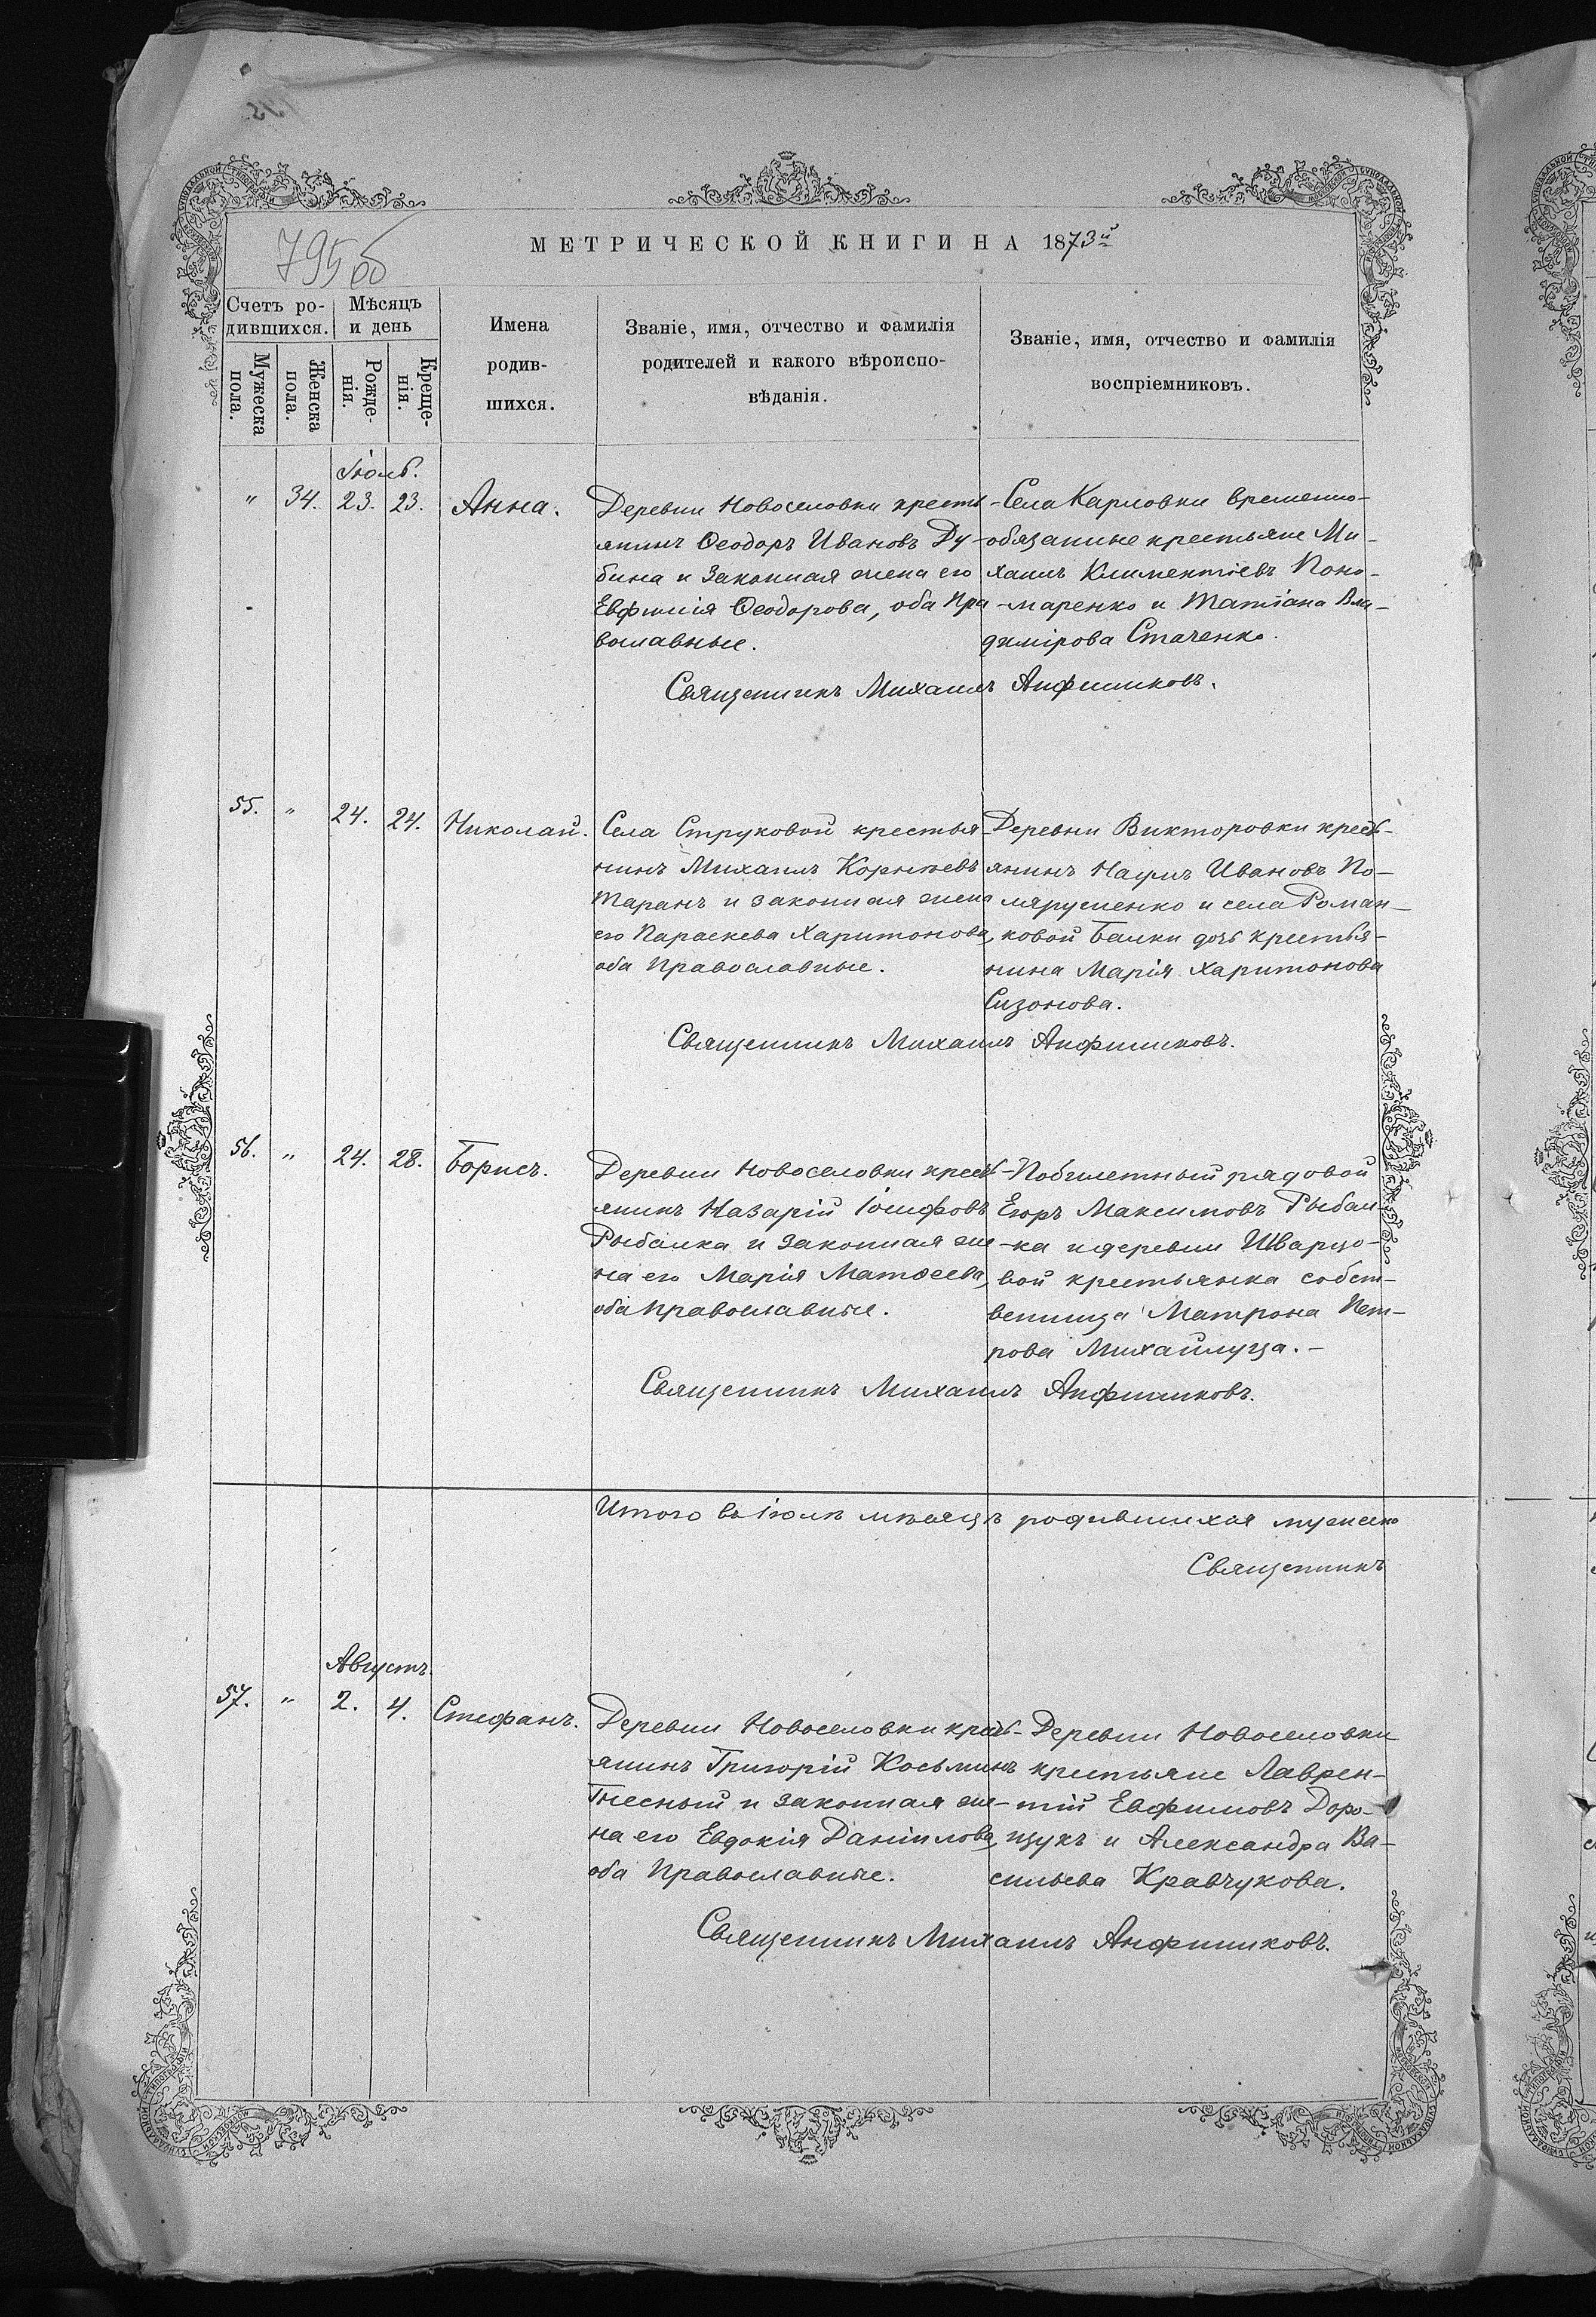 795 об
МЕТРИЧЕСКОЙ КНИГИ НА 1873й
Счетъ ро-
дившихся.
Мѣсяцъ
и день
Мужеска
пола.
Женска
пола.
Рожде-
нія.
Креще-
нія.
Имена
родив-
шихся.
Званіе, имя, отчество и фамилія
родителей и какого вѣроиспо-
вѣданія.
Званіе, имя, отчество и фамилія
воспріемниковъ.
Іюль.
" 34. 23. 23. Анна.
Деревни Новоселовки кресть-
янинъ Ѳеодоръ Ивановъ Ду-
бина и законная жена его
Евфимія Ѳеодорова, оба пра-
вославные.
Села Карловки временно-
обязанные крестьяне Ми-
хаилъ Климентіевъ Поно-
маренко и Татіана Вла-
димірова Стаченко.
Священникъ Михаилъ Анфимиковъ.
55. " 24. 24. Николай.
Села Струковой крестья-
нинъ Михаилъ Корнѣевъ
Таранъ и законная жена
его Параскева Харитонова,
оба православные.
Деревни Викторовки кресть-
янинъ Наумъ Ивановъ По-
лярушенко и села Роман-
ковой Балки дочь крестья-
нина Марія Харитонова
Сизонова.
Священникъ Михаилъ Анфимиковъ.
56. " 24. 28. Борисъ.
Деревни Новоселовки кресть-
янинъ Назарій Іосифовъ
Рыбалка и законная же-
на его Марія Матѳеева,
оба православные.
Побилетный рядовой
Егоръ Максимовъ Рыбал-
ка и деревни Шварцо-
вой крестьянка собст-
венница Матрона Пет-
рова Михайлуца.-
Священникъ Михаилъ Анфимиковъ.
Итого въ іюлѣ мѣсяцѣ родившихся мужеска
Священникъ
Августъ.
57. " 2. 4. Стефанъ.
Деревни Новоселовки кресть-
янинъ Григорій Косьминъ
Тѣсный и законная же-
на его Евдокія Даніилова,
оба православные.
Деревни Новоселовки
крестьяне Лаврен-
тій Евфимовъ Доро-
щукъ и Александра Ва-
сильева Кравчукова.
Священникъ Михаилъ Анфимиковъ.